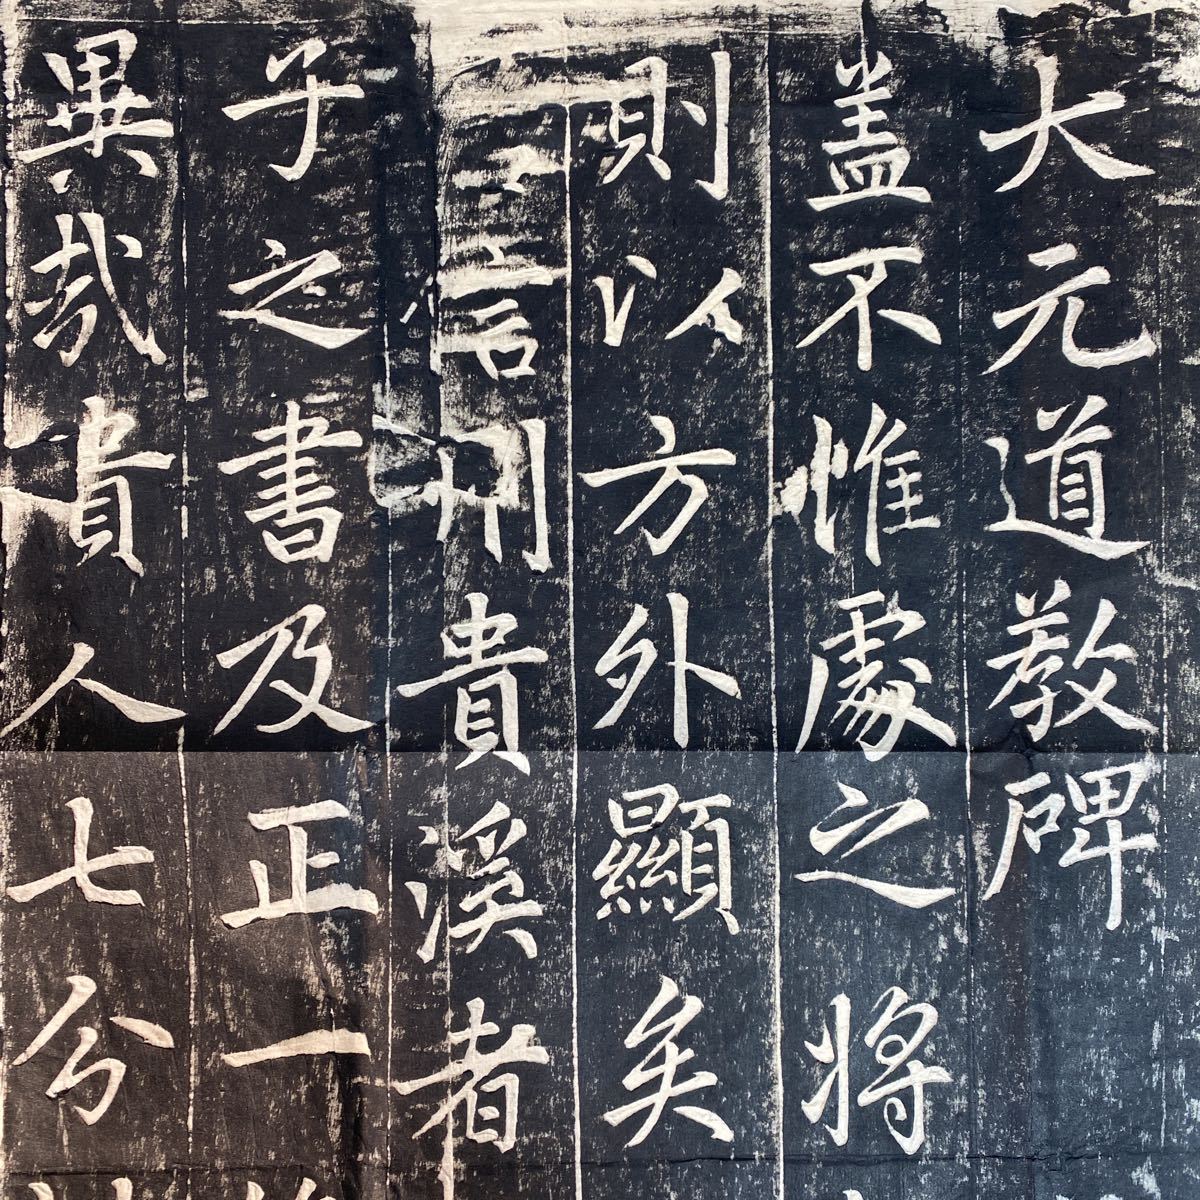 大元道教碑
盖不惟處之將
則以方外顯矣
言信州貴溪者
子之書及正一
異哉貴人七分